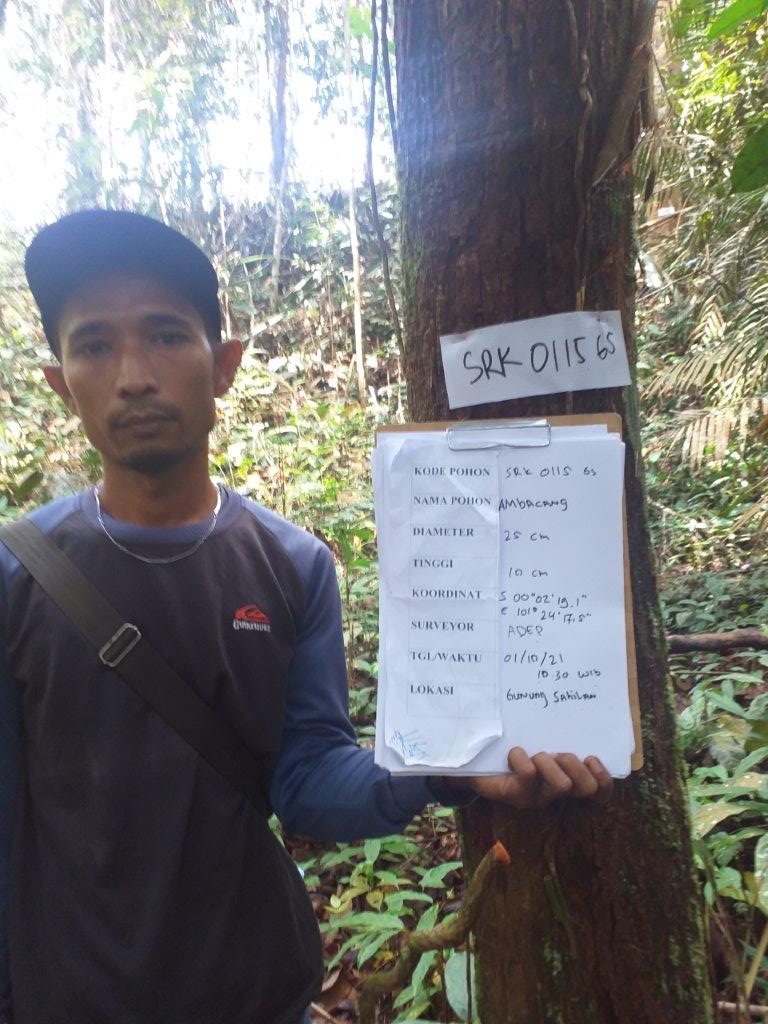 SRK 0115 GS
KODE POHON SRK 0115 GS
NAMA POHON AMBACANG
DIAMETER 25 cm
TINGGI 10 cm
KOORDINAT S 00°02'19.1"
E 101°24'17.5"
SURVEYOR ADEP
TGL/WAKTU 01/10/21
10 30 WIB
LOKASI Gunung